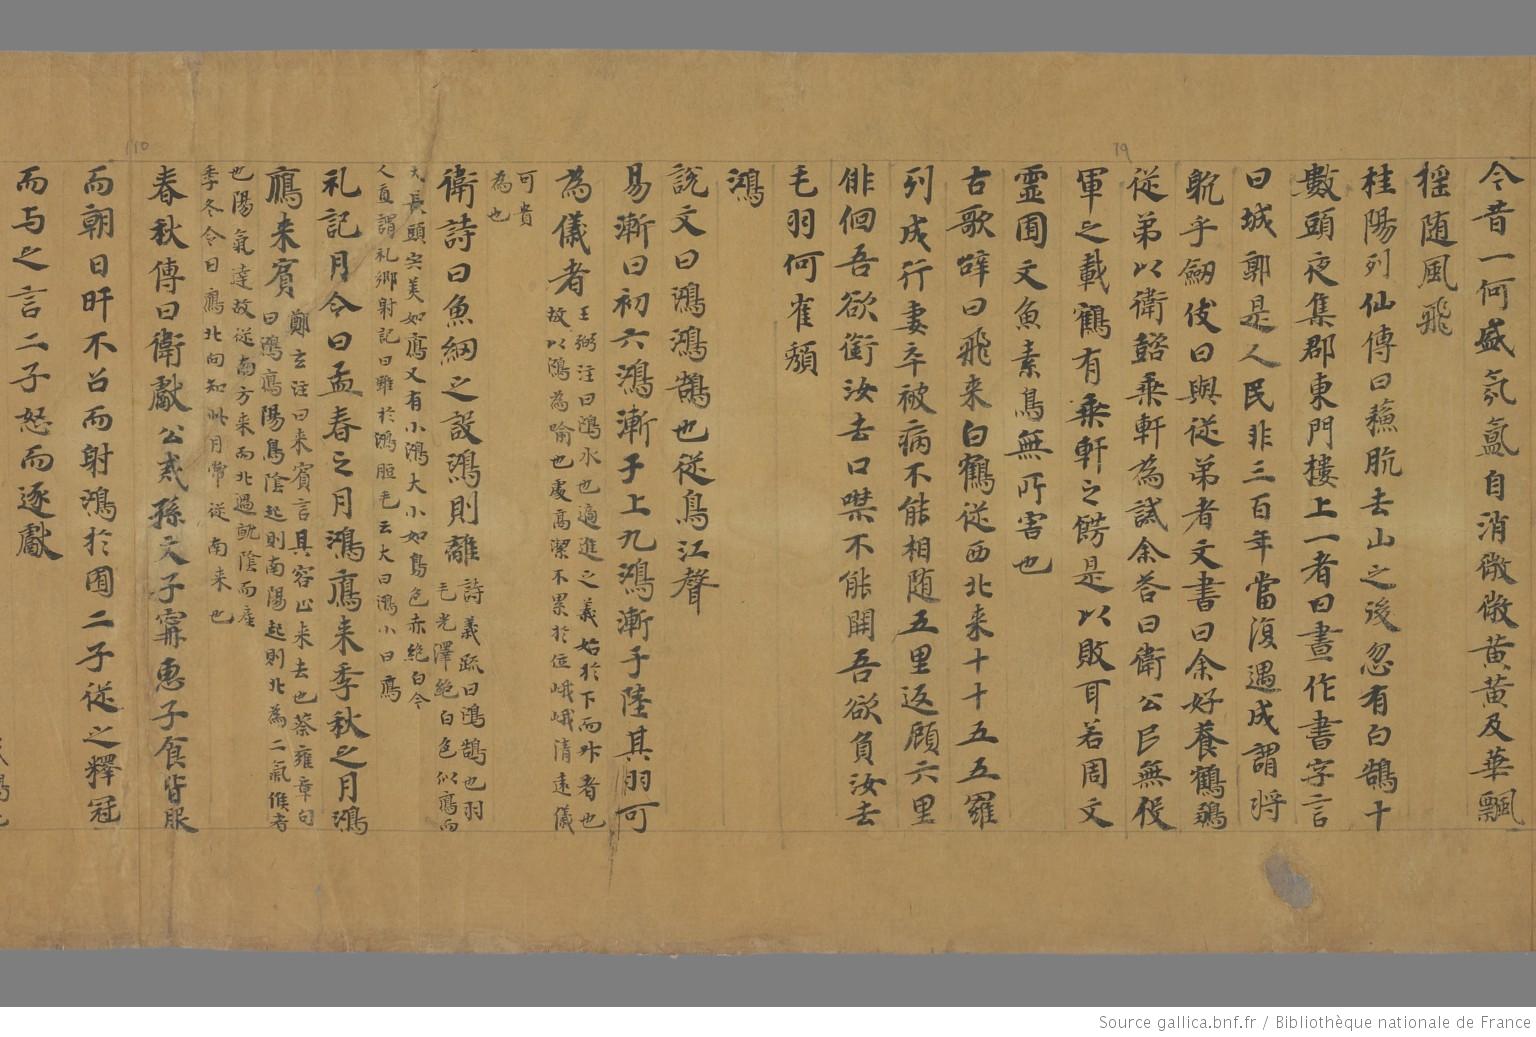 今昔一何盛氛氳自消微微黄黄及華飄
摇随風飛
桂陽列仙傳曰蘓躭去山之後忽有白鵠十
數頭夜集郡東門樓上一者曰畫作書字言
曰城郭是人民非三百年當復遇成謂將
躭乎劒伎曰與從弟者文書曰余好養鶴鵄
從弟以衛懿乘軒為試余荅曰衛公民無役
軍之載鶴有乘軒之餝是以敗耳若周文
靈囿文魚素鳥無所害也
古歌辝曰飛来白鶴從西北来十十五五羅
列成行妻卒被病不能相随五里返顧六里
俳佪吾欲銜汝去口噤不能開吾欲負汝去
毛羽何雀頽
鴻
說文曰鴻鴻鵠也從鳥江聲
易漸曰初六鴻漸于上九鴻漸于陸其羽可
為儀者
王弼注曰鴻水也適進之義始於下而升者也
故以鴻為喻也處高潔不累於位峨峨清遠儀
可貴
為也
衛詩曰魚網之設鴻則離
詩義疏曰鴻鵠也羽
毛光澤絶白色似鴈而
大長頭宍美如鴈又有小鴻大小如鳥色赤絶白今
人直謂礼郷射記曰雖於鴻脰毛云大曰鴻小曰鴈
礼記月令曰孟春之月鴻鴈来季秋之月鴻
鴈来賓
鄭玄注曰来賓言具容止来去也蔡雍章句
曰鴻鴈陽鳥陰起則南陽起則北為二氣候者
也陽氣達故從南方来而北過就陰而産
季冬令曰鴈北向知此月常從南来也
春秋傳曰衛獻公戒孫文子甯惠子食皆服
而朝日旰不召而射鴻於囿二子従之釋冠
而与之言二子怒而逐獻